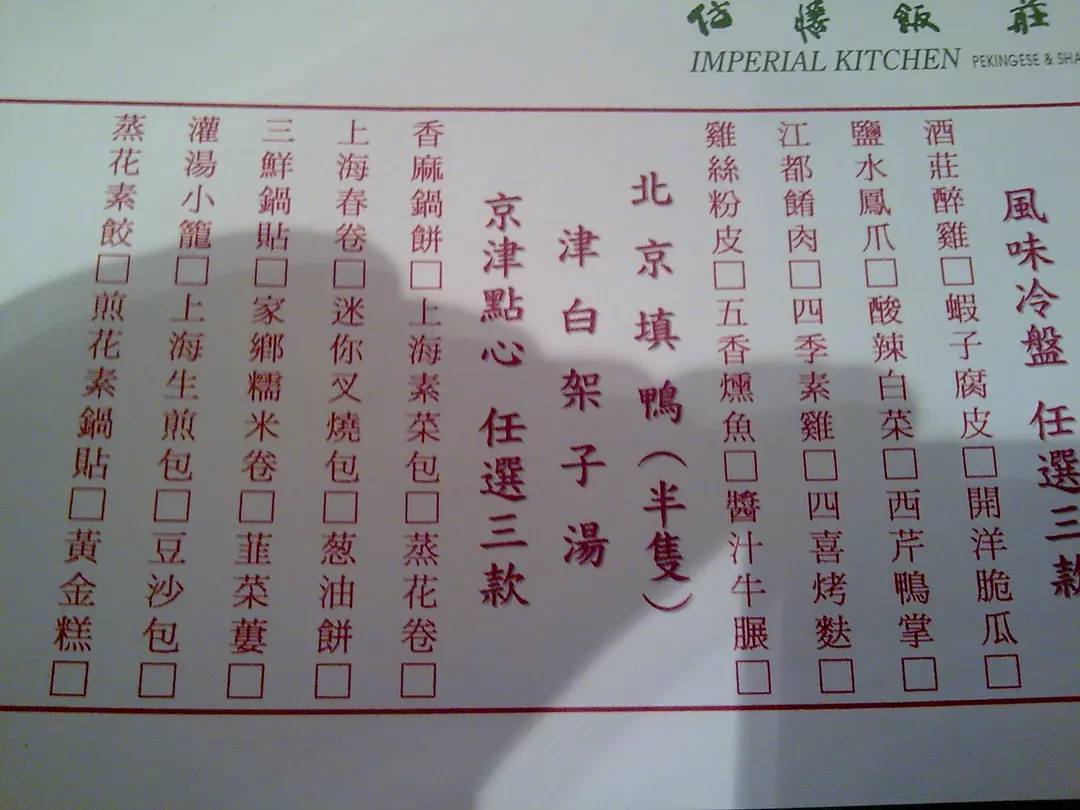 仿膳飯莊
IMPERIAL KITCHEN PEKINGESE & SHA
風味冷盤 任選三款
酒莊醉雞□蝦子腐皮□開洋脆瓜□
鹽水鳳爪□酸辣白菜□西芹鴨掌□
江都餚肉□四季素雞□四喜烤麩□
雞絲粉皮□五香燻魚□醬汁牛𦟌□
北京填鴨(半隻)
津白架子湯
京津點心 任選三款
香麻鍋餅□上海素菜包□蒸花卷□
上海春卷□迷你叉燒包□葱油餅□
三鮮鍋貼□家鄉糯米卷□韮菜蔞□
灌湯小籠□上海生煎包□豆沙包□
蒸花素餃□煎花素鍋貼□黃金糕□